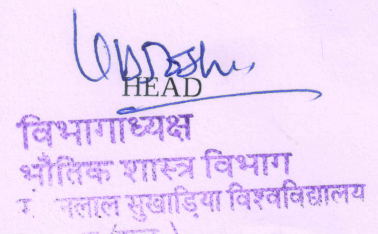 HEAD
विभागाध्यक्ष
भौतिक शास्त्र विभाग
नलाल सुखाड़िया विश्वविद्यालय